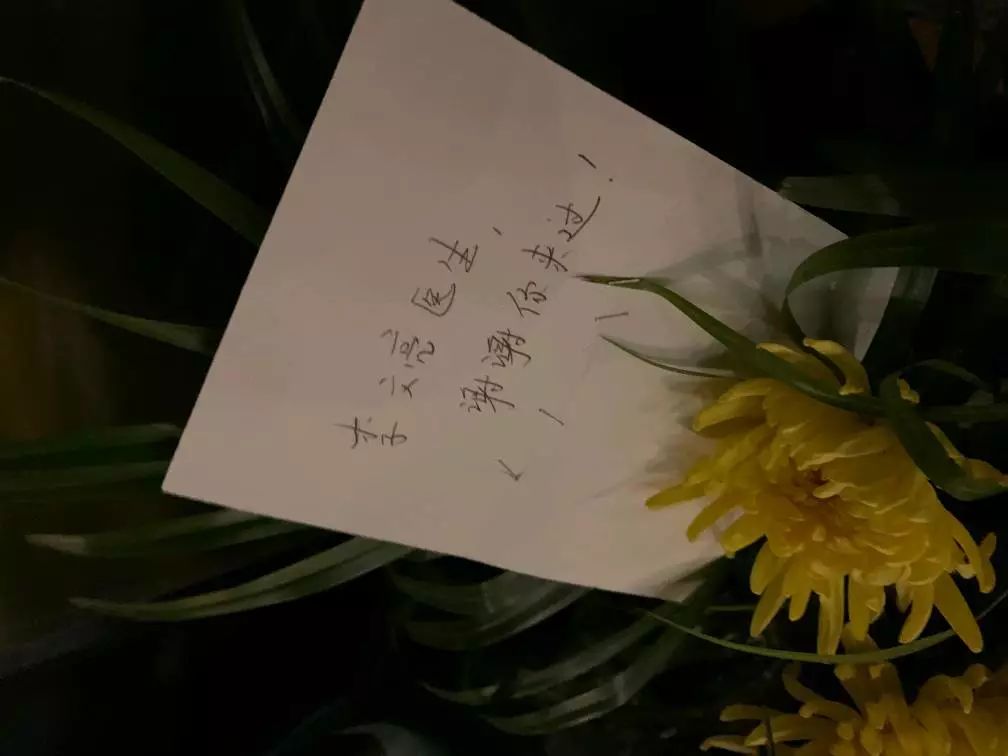 李文亮医生，
谢谢你来过！